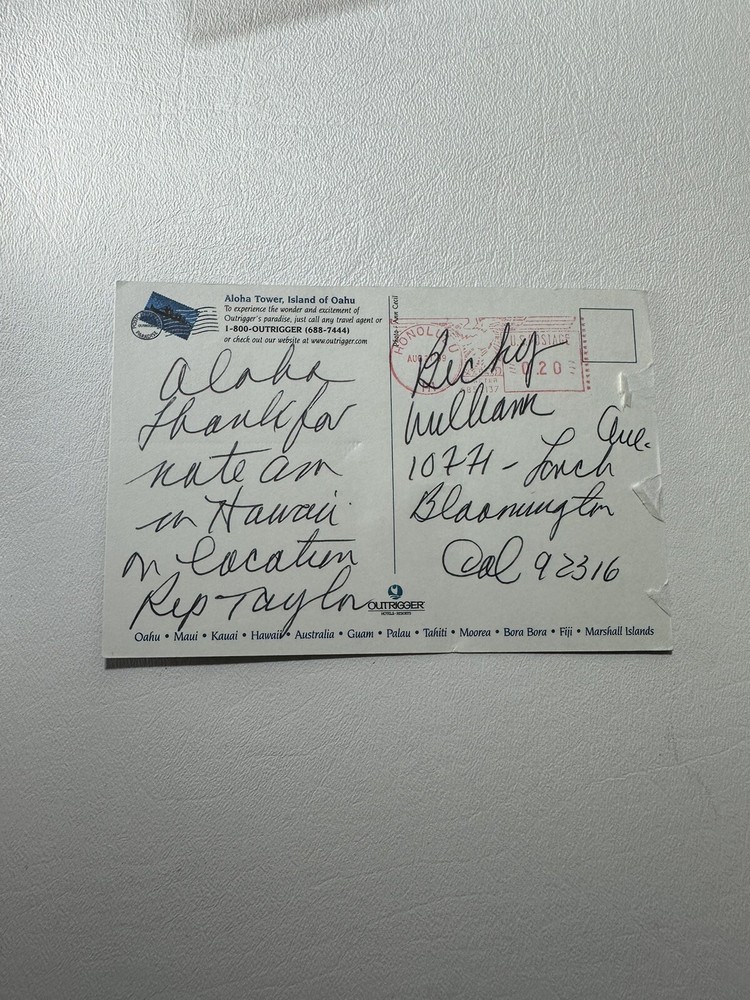 Aloha Tower, Island of Oahu
To experience the wonder and excitement of
Outrigger's paradise, just call any travel agent or
1-800-OUTRIGGER (688-7444)
or check out our website at www.outrigger.com
Aloha
Thank for
note am
in Hawaii
on location
Rip Taylor
Photo: Ann Cecil
HONOLULU
AUG
HI
U.S. POSTAGE
0.20
William
Ave.
Bloomington
Cal 92316
OUTRIGGER
HOTELS • RESORTS
Oahu • Maui • Kauai • Hawaii • Australia • Guam • Palau • Tahiti • Moorea • Bora Bora • Fiji • Marshall Islands